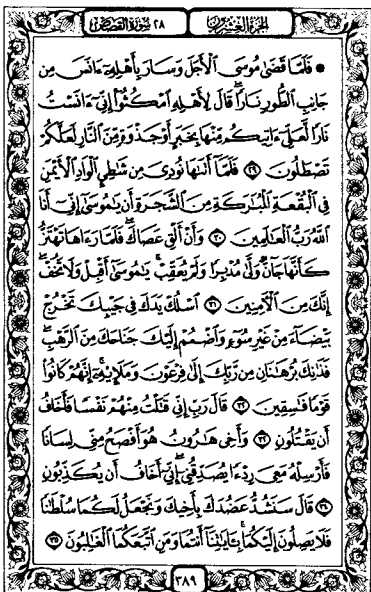 الجزء العشرون
٢٨ سورة القصص
۞ فَلَمَّا قَضَىٰ مُوسَى ٱلْأَجَلَ وَسَارَ بِأَهْلِهِۦٓ ءَانَسَ مِن
جَانِبِ ٱلطُّورِ نَارًاۖ قَالَ لِأَهْلِهِ ٱمْكُثُوٓا۟ إِنِّىٓ ءَانَسْتُ
نَارًا لَّعَلِّىٓ ءَاتِيكُم مِّنْهَا بِخَبَرٍ أَوْ جَذْوَةٍ مِّنَ ٱلنَّارِ لَعَلَّكُمْ
تَصْطَلُونَ ٢٩ فَلَمَّآ أَتَىٰهَا نُودِىَ مِن شَٰطِئِ ٱلْوَادِ ٱلْأَيْمَنِ
فِى ٱلْبُقْعَةِ ٱلْمُبَٰرَكَةِ مِنَ ٱلشَّجَرَةِ أَن يَٰمُوسَىٰٓ إِنِّىٓ أَنَا
ٱللَّهُ رَبُّ ٱلْعَٰلَمِينَ ٣٠ وَأَنْ أَلْقِ عَصَاكَۖ فَلَمَّا رَءَاهَا تَهْتَزُّ
كَأَنَّهَا جَآنٌّ وَلَّىٰ مُدْبِرًا وَلَمْ يُعَقِّبْۚ يَٰمُوسَىٰٓ أَقْبِلْ وَلَا تَخَفْۖ
إِنَّكَ مِنَ ٱلْءَامِنِينَ ٣١ ٱسْلُكْ يَدَكَ فِى جَيْبِكَ تَخْرُجْ
بَيْضَآءَ مِنْ غَيْرِ سُوٓءٍ وَٱضْمُمْ إِلَيْكَ جَنَاحَكَ مِنَ ٱلرَّهْبِۖ
فَذَٰنِكَ بُرْهَٰنَانِ مِن رَّبِّكَ إِلَىٰ فِرْعَوْنَ وَمَلَإِي۟هِۦٓۚ إِنَّهُمْ كَانُوا۟
قَوْمًا فَٰسِقِينَ ٣٢ قَالَ رَبِّ إِنِّى قَتَلْتُ مِنْهُمْ نَفْسًا فَأَخَافُ
أَن يَقْتُلُونِ ٣٣ وَأَخِى هَٰرُونُ هُوَ أَفْصَحُ مِنِّى لِسَانًا
فَأَرْسِلْهُ مَعِىَ رِدْءًا يُصَدِّقُنِىٓۖ إِنِّىٓ أَخَافُ أَن يُكَذِّبُونِ
٣٤ قَالَ سَنَشُدُّ عَضُدَكَ بِأَخِيكَ وَنَجْعَلُ لَكُمَا سُلْطَٰنًا
فَلَا يَصِلُونَ إِلَيْكُمَاۚ بِـَٔايَٰتِنَآ أَنتُمَا وَمَنِ ٱتَّبَعَكُمَا ٱلْغَٰلِبُونَ ٣٥
٣٨٩